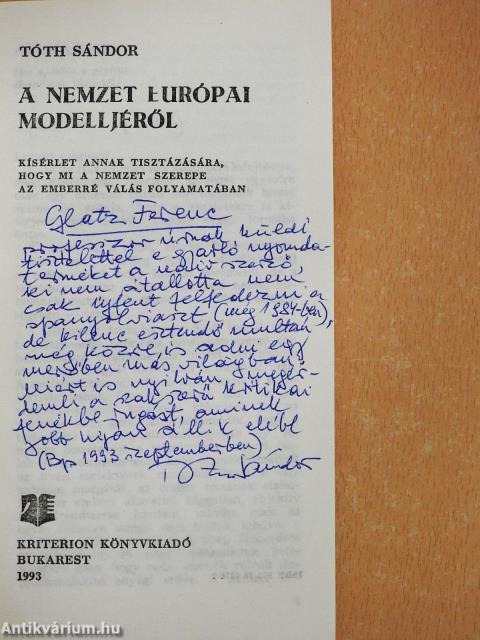 TÓTH SÁNDOR
A NEMZET EURÓPAI
MODELLJÉRŐL
KÍSÉRLET ANNAK TISZTÁZÁSÁRA,
HOGY MI A NEMZET SZEREPE
AZ EMBERRÉ VÁLÁS FOLYAMATÁBAN
Glatz Ferenc
professzor úrnak küldi
tisztelettel e gyarló nyomda-
terméket a naiv szerző,
ki nem átallotta nem
csak újfent felfedezni a
spanyolviaszt (még 1984-ben),
de kilenc esztendő multán
még közre is adni egy
merőben más világban.
Miért is nyilván megér-
demli a szakszerű kritikai
fenékbe rúgást, aminek
jobb híján áll elébe
(Bp 1993 szeptemberben)
Tóth Sándor
KRITERION KÖNYVKIADÓ
BUKAREST
1993
Antikvárium.hu